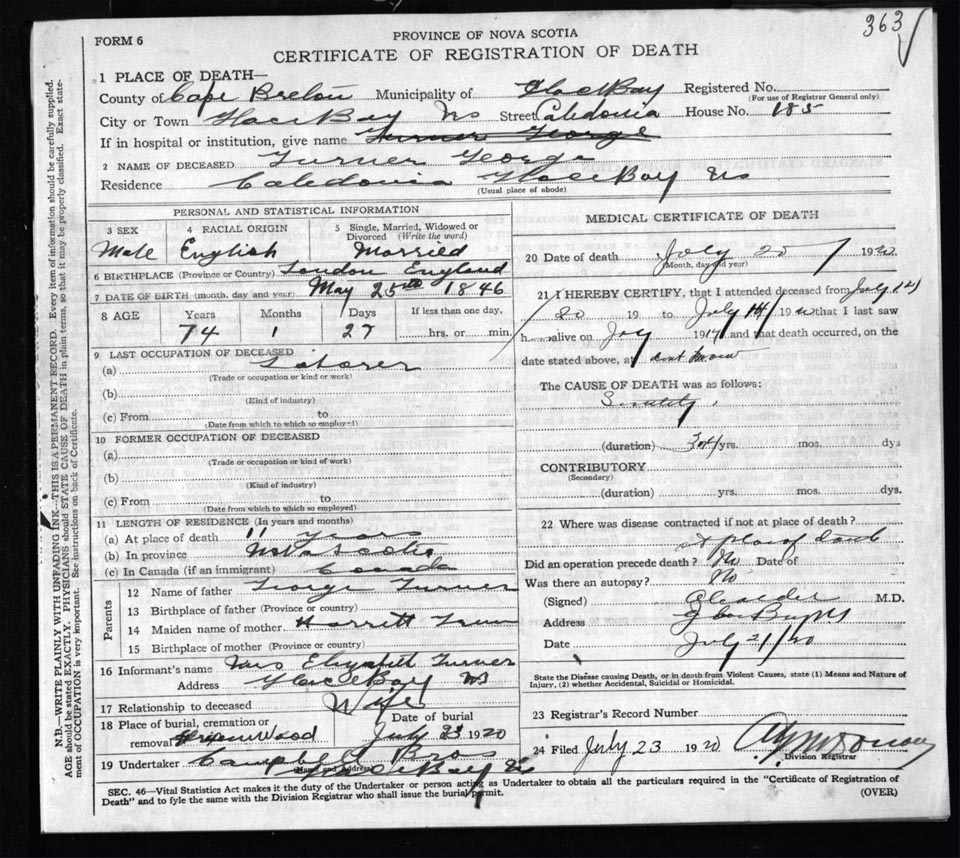 363
FORM 6
PROVINCE OF NOVA SCOTIA
CERTIFICATE OF REGISTRATION OF DEATH
1 PLACE OF DEATH—
County of Cape Breton Municipality of Glace Bay Registered No.
(For use of Registrar General only)
City or Town Glace Bay NS Street Caledonia House No. 185
If in hospital or institution, give name Turner George
2 NAME OF DECEASED Turner George
Residence Caledonia Glace Bay NS
(Usual place of abode)
PERSONAL AND STATISTICAL INFORMATION
3 SEX 4 RACIAL ORIGIN 5 Single, Married, Widowed or Divorced (Write the word)
Male English Married
6 BIRTHPLACE (Province or Country) London England
7 DATE OF BIRTH (month, day and year) May 25th 1846
8 AGE Years Months Days If less than one day,
74 1 27 hrs. or min.
9 LAST OCCUPATION OF DECEASED
(a) Laborer
(Trade or occupation or kind or work)
(b)
(Kind of industry)
(c) From to
(Date from which to which so employed)
10 FORMER OCCUPATION OF DECEASED
(a)
(Trade or occupation or kind of work)
(b)
(Kind of industry)
(c) From to
(Date from which to which so employed)
11 LENGTH OF RESIDENCE (In years and months)
(a) At place of death 11 Years
(b) In province Nova Scotia
(c) In Canada (if an immigrant) Canada
Parents
12 Name of father George Turner
13 Birthplace of father (Province or country)
14 Maiden name of mother Harrett
15 Birthplace of mother (Province or country)
16 Informant's name Mrs Elizabeth Turner
Address Glace Bay NS
17 Relationship to deceased Wife
18 Place of burial, cremation or removal Greenwood Date of burial July 23 1920
19 Undertaker Campbell Bros
(Name and Address) Glace Bay NS
MEDICAL CERTIFICATE OF DEATH
20 Date of death July 20 1920
(Month, day and year)
21 I HEREBY CERTIFY, that I attended deceased from July 14
20 19 to July 14 19 that I last saw
h alive on 19 and that death occurred, on the
date stated above, at dont know
The CAUSE OF DEATH was as follows:
Senility
(duration) yrs. mos. dys
CONTRIBUTORY
(Secondary)
(duration) yrs. mos. dys.
22 Where was disease contracted if not at place of death?
at place of death
Did an operation precede death? No Date of
Was there an autopsy? No
(Signed) M.D.
Address Glace Bay NS
Date July 21/20
State the Disease causing Death, or in death from Violent Causes, state (1) Means and Nature of
Injury, (2) whether Accidental, Suicidal or Homicidal.
23 Registrar's Record Number
24 Filed July 23 1920
Division Registrar
SEC. 46—Vital Statistics Act makes it the duty of the Undertaker or person acting as Undertaker to obtain all the particulars required in the "Certificate of Registration of
Death" and to fyle the same with the Division Registrar who shall issue the burial permit. (OVER)
N.B.—WRITE PLAINLY WITH UNFADING INK—THIS IS A PERMANENT RECORD. Every item of information should be carefully supplied.
AGE should be stated EXACTLY. PHYSICIANS should STATE CAUSE OF DEATH in plain terms, so that it may be properly classified. Exact state-
ment of OCCUPATION is very important. See instructions on back of Certificate.